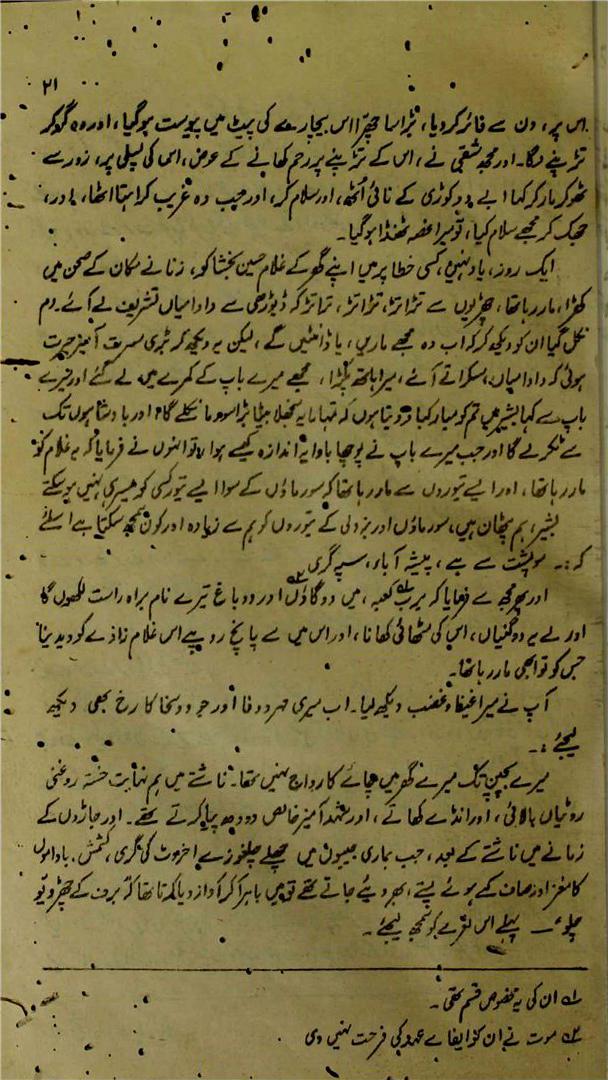 ۲۱
اس پر، دن سے فائر کر دیا، بڑا سا چھرّا اس بیچارے کی پیٹ میں پیوست ہو گیا، اور وہ گر کر
تڑپنے لگا۔ اور مجھ شقی نے، اس کے تڑپنے پر رحم کھانے کے عوض، اس کی پسلی پر، زور سے
ٹھوکر مار کر کہا ابے دو کوڑی کے نائی اُٹھ، اور سلام کر، اور جب وہ غریب کراہتا اٹھا، اور،
جھک کر مجھے سلام کیا، تو میرا غصہ ٹھنڈا ہو گیا۔
ایک روز، یاد نہیں، کسی خطا پر میں اپنے گھر کے غلام حسین بخشا کو، زنانے مکان کے صحن میں
کھڑا، مار رہا تھا، چھڑیوں سے تڑاتڑ، تڑاتڑ، تڑاتڑ کہ ڈیوڑھی سے دادا میاں تشریف لے آئے۔ دم
نکل گیا ان کو دیکھ کر کہ اب وہ مجھے ماریں، یا ڈانٹیں گے، لیکن یہ دیکھ کر بڑی مسرت آمیز حیرت
ہوئی کہ دادا میاں، مسکراتے آئے، میرا ہاتھ پکڑا، مجھے میرے باپ کے کمرے میں لے گئے اور میرے
باپ سے کہا بشیر میں تم کو مبارکباد دیتا ہوں کہ تمہارا یہ منجھلا بیٹا بڑا سورما نکلے گا، اور بادشاہوں تک
سے ٹکر لے گا اور جب میرے باپ نے پوچھا باوا یہ اندازہ کیسے ہوا، تو انہوں نے فرمایا کہ یہ غلام کو
مار رہا تھا، اور ایسے تیوروں سے مار رہا تھا کہ سورماؤں کے سوا ایسے تیور کسی کو میسر ہی نہیں ہو سکتے
بشیر، ہم پٹھان ہیں، سورماؤں اور بزدلی کے تیوروں کو ہم سے زیادہ اور کون سمجھ سکتا ہے اسلئے
کہ:۔ سو پشت سے ہے، پیشۂ آباء، سپہ گری
اور پھر مجھ سے فرمایا کہ بربِ کعبہ، میں دو گاؤں اور دو باغ تیرے نام براہ راست لکھوں گا
اور لے یہ دو گنیاں، اس کی مٹھائی کھانا، اور اس میں سے پانچ روپیے اس غلام زادے کو دیدینا
جس کو تو ابھی مار رہا تھا۔
آپ نے میرا غیظ و غضب دیکھ لیا۔ اب میری مہر و وفا اور جود و سخا کا رخ بھی دیکھ
لیجئے:۔
میرے بچپن تک میرے گھر میں چائے کا رواج نہیں تھا۔ ناشتے میں ہم نہایت خستہ روغنی
روٹیاں بالائی، اور انڈے کھاتے، اور شہد آمیز خالص دودھ پیا کرتے تھے۔ اور جاڑوں کے
زمانے میں ناشتے کے بعد، جب ہماری جیبوں میں چھلے چلغوزے اخروٹ کی گری، کشمش، باداموں
کا مغز اور صاف کئے ہوئے پستے، بھر دیئے جاتے تھے تو میں باہر آکر آواز دیا کرتا تھا کہ برف کے چھڑویو
چلو۔ پہلے اس نعرے کو سمجھ لیجئے۔
۱؎ ان کی یہ مخصوص قسم تھی۔
۲؎ موت نے ان کو ایفائے عہد کی فرصت نہیں دی